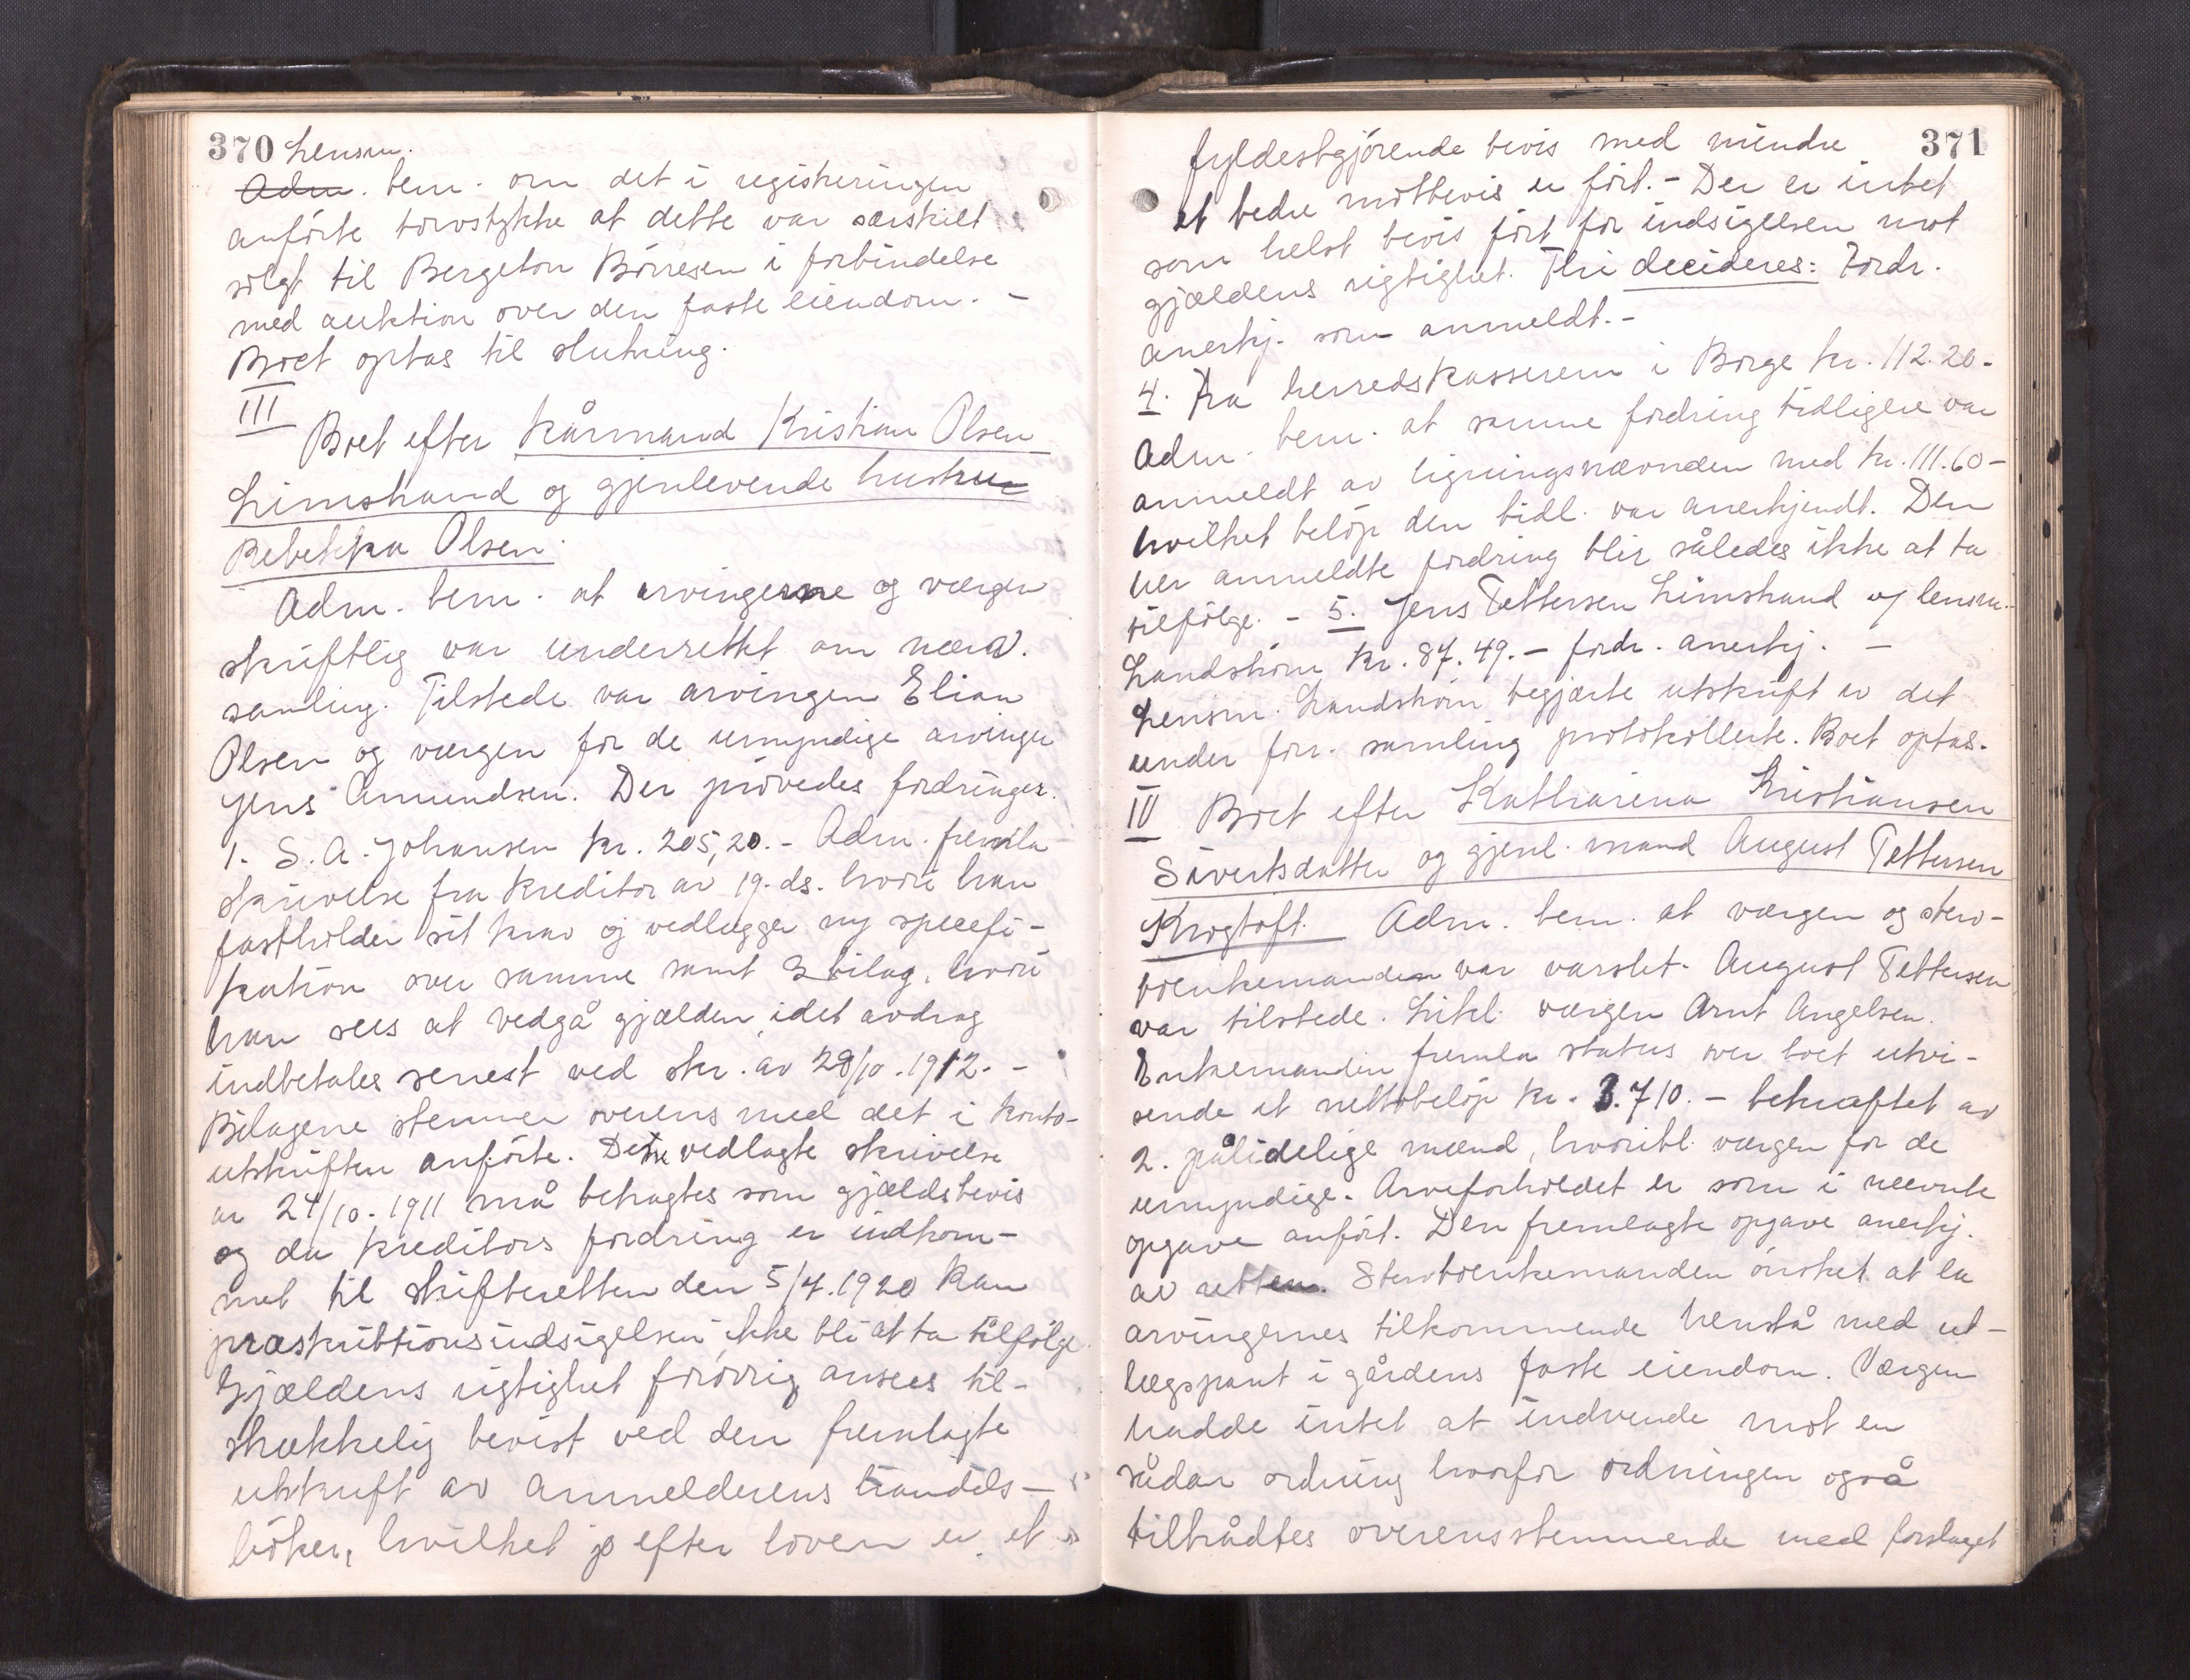 370 Lensm.
Adm. bem. om det i registreringen
anförte torvstykke at dette var særskilt
solgt til Bergeton Börresen i forbindelse
med auktion over den faste eiendom. -
Boet optas til slutning.
III
Boet efter kårmand Kristian Olsen
Limstrand og gjenlevende hustru
Rebekka Olsen.
Adm. bem. at arvingerne og værgen
skriftlig var underrettet om nærv.
samling. Tilstede var arvingen Elian
Olsen og værgen for de umyndige arvinger
Jens Amundsen. Der prövedes fordringer.
1. S. A. Johansen kr. 205,20.- Adm. fremla
skrivelse fra kreditor av 19. ds. hvori han
fastholder sit krav og vedlægger ny specefi-
kation over samme samt 3 bilag, hvori
han sees at vedgå gjælden, idet avdrag
indbetales senest ved skr. av 28/10. 1912. -
Bilagene stemmer overens med det i konto-
utskriften anförte. Den vedlagte skrivelse
av 24/10. 1911 må betragtes som gjældsbevis
og da kreditors fordring er indkom-
met til skifteretten den 5/4. 1920 kan
præskriptionsindsigelsen ikke bli at ta tilfölge.
Gjældens rigtighet forövrig ansees til-
strækkelig bevist ved den fremlagte
utskrift av anmelderens handels-
böker, hvilket jo efter loven er et
371
fyldestgjörende bevis med mindre
et bedre motbevis er fört. - Der er intet
som helst bevis fört for indsigelsen mot
gjældens rigtighet. Thi decideres: Fordr.
anerkj. som anmeldt.-
4. Fra herredskassereren i Borge kr. 112.20.
Adm. bem. at samme fordring tidligere var
anmeldt av ligningsnævnden med kr. 111.60 -
hvilket belöp den tidl. var anerkjendt. Den
her anmeldte fordring blir således ikke at ta
tilfölge. - 5. Jens Pettersen Limstrand og lensm.
Landström kr. 87.49. - fordr. anerkj. -
Lensm. Landström begjærte utskrift av det
under forr. samling protokollerte. Boet optas.
IV Boet efter Katharina Kristiansen
Sivertsdatter og gjenl. mand August Pettersen
Krogtoft. Adm. bem. at værgen og sterv-
boenkemanden var varslet. August Pettersen
var tilstede. Likel. værgen Arnt Angelsen.
Enkemanden fremla status over boet utvi-
sende et nettobelöp kr. 3.710. - bekræftet av
2. pålidelige mænd, hvoribl. værgen for de
umyndige. Arveforholdet er som i nævnte
opgave anfört. Den fremlagte opgave anerkj.
av retten. Stervboenkemanden önsket at la
arvingernes tilkommende henstå med ut-
lægspant i gårdens faste eiendom. Værgen
hadde intet at indvende mot en
sådan ordning hvorfor ordningen også
tiltrådtes overensstemmende med forslaget